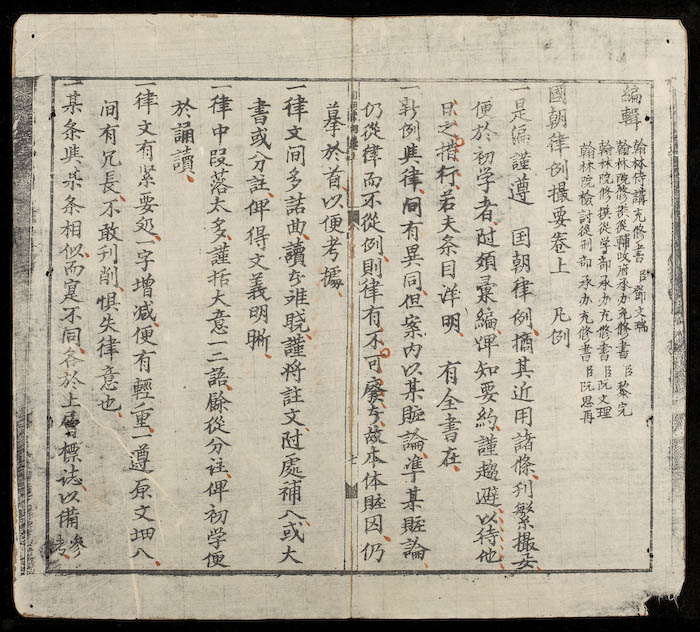 編輯
翰林侍講充修書臣鄧文瑞
翰林院修撰從輔政府承办充修書臣黎完
翰林院修撰從学部承办充修書臣阮文理
翰林院檢討從刑部承办充修書臣阮思再
國朝律例撮要卷上 凡例
一是編謹遵 国朝律例摘其近用諸條刋繁撮要
便於初学者附類彙編俾知要約謹趨避以待他
日之揩行若夫条目洋明 有全書在
一新例與律間有異同但案內以某賍論準某賍論
仍從律而不從例則律有不可廢者故本体賍因仍
摹於首以便考據
一律文间多詰曲讀者难曉謹将註文附處補入或大
書或分註俾得文義明晣
一律中段落太多謹括大意一二語餘從分注俾初学便
於誦讀
一律文有緊要処一字增減便有輕重一遵原文㘭入
间有冗長不敢刋削惧失律意也
一某条與某条相似而寔不同各於上層標誌以備參考
七